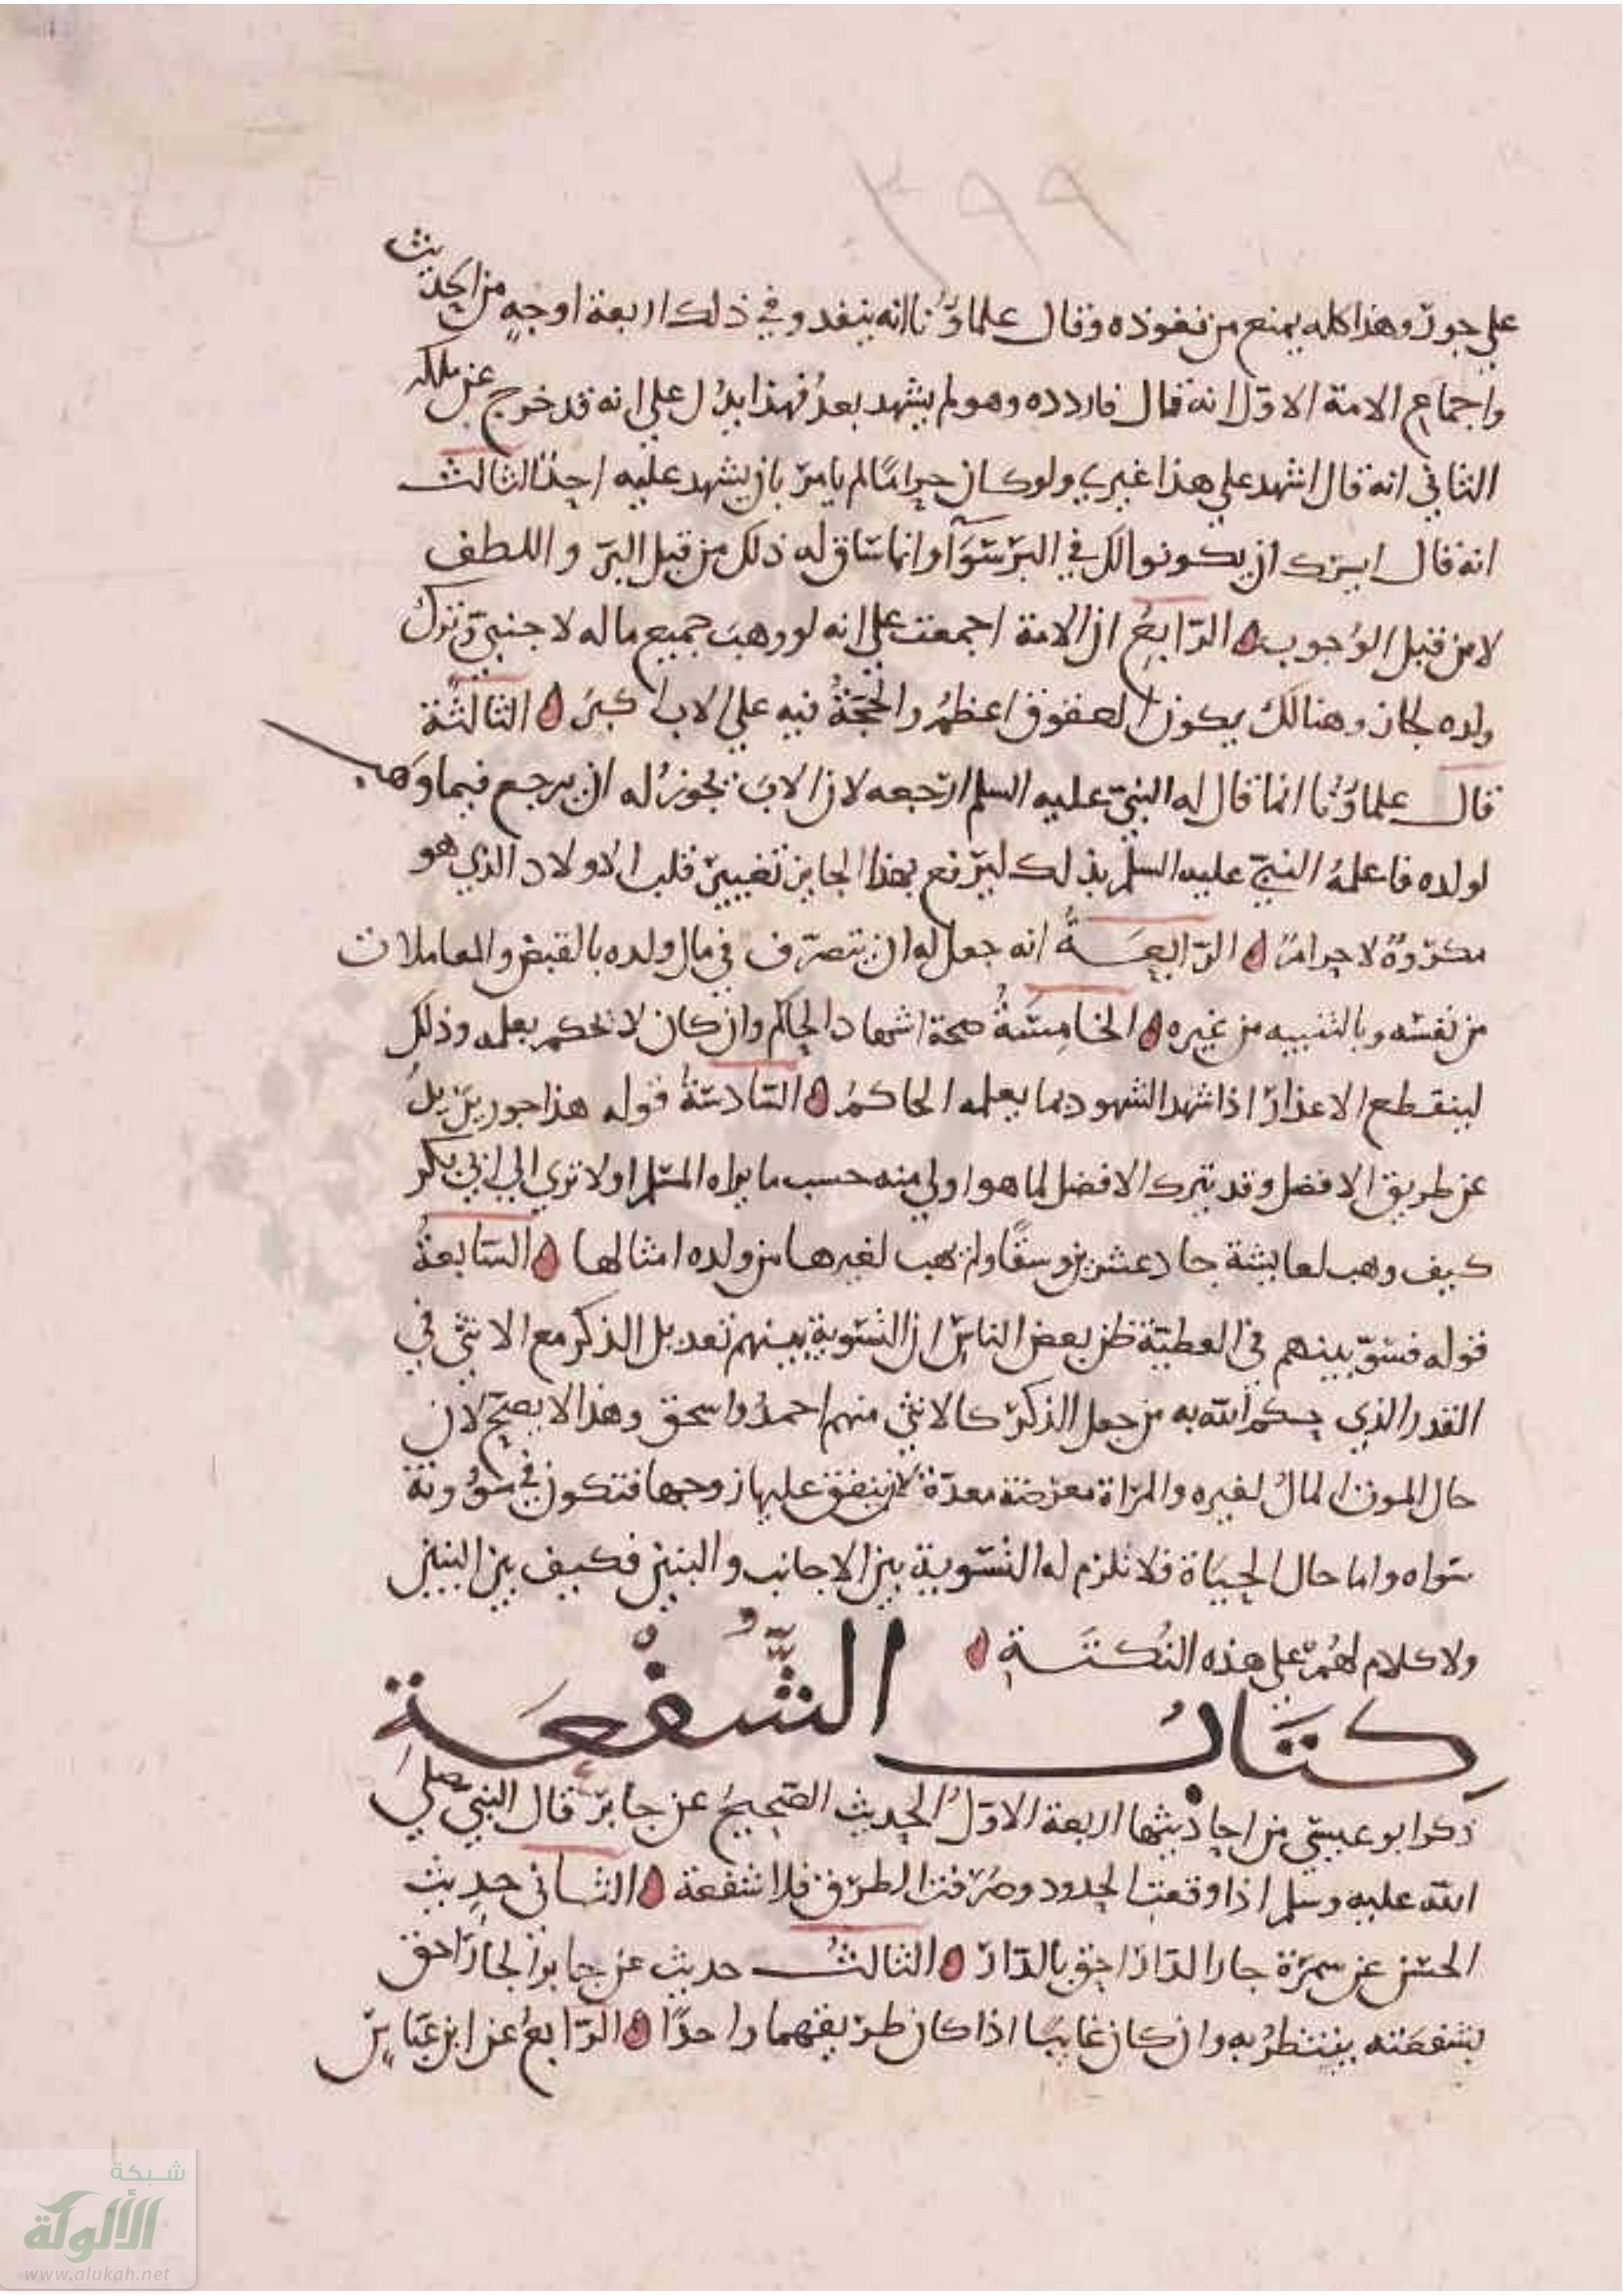 ٣٩٩
علي جور وهذا كله يمنع من نفوذه وقال علماؤنا انه ينفد وفي ذلك اربعة اوجه من الحديث
واجماع الامة الاول انه قال فاردده وهو لم يشهد بعد فهذا يدل علي انه قد خرج عن ملكه
الثاني انه قال اشهد علي هذا غيري ولو كان حراما لم يامر بان يشهد عليه احد الثالث
انه قال ايسرك ان يكونوا لك في البر سوآ وانما ساق له ذلك من قبل البر واللطف
لا من قبل الوجوب الرابع ان الامة اجمعت علي انه لو وهب جميع ماله لاجنبي وترك
ولده لجاز وهنالك يكون العقوق اعظم والحجة فيه علي الاب اكبر الثالثة
قال علماؤنا انما قال له النبي عليه السلم ارتجعه لان الاب يجوز له ان يرجع فيما وهب
لولده فاعلمه النبي عليه السلم بذلك ليرفع بهذا الجايز تغيير قلب الاولاد الذي هو
مكروه لا حرام الرابعة انه جعل له ان يتصرف في مال ولده بالقبض والمعاملات
من نفسه وبالتنبيه من غيره الخامسة صحة اشهاد الحاكم وان كان لا يحكم بعلمه وذلك
لينقطع الاعذار اذا شهد الشهود بما يعلمه الحاكم السادسة قوله هذا جور يريد يل
عن طريق الافضل وقد يترك الافضل لما هو اولي منه حسب ما يراه المسلم اولا تري الي ابي بكر
كيف وهب لعايشة جاد عشرين وسقا ولم يهب لغيرها من ولده امثالها السابعة
قوله فسو بينهم في العطية ظن بعض الناس ان التسوية بينهم تعديل الذكر مع الانثي في
القدر الذي حكم الله به من جعل الذكر كالانثي منهم احمد واسحق وهذا لا يصح لان
حال الموت المال لغيره والمراة معرضة معدة لان ينفق عليها زوجها فتكون في مؤونة
سواه واما حال الحياة فلا تلزم له التسوية بين الاجانب والبنين فكيف بين البنين
ولا كلام لهم علي هذه النكتة
كتاب الشفعة
ذكر ابو عيسي من احاديثها اربعة الاول الحديث الصحيح عن جابر قال النبي صلي
الله عليه وسلم اذا وقعت الحدود وصرفت الطرق فلا شفعة الثاني حديث
الحسن عن سمرة جار الدار احق بالدار الثالث حديث عن جابر الجار احق
بشفعته ينتظر به وان كان غايبا اذا كان طريقهما واحدا الرابع عن ابن عباس
شبكة
الألوكة
www.alukah.net